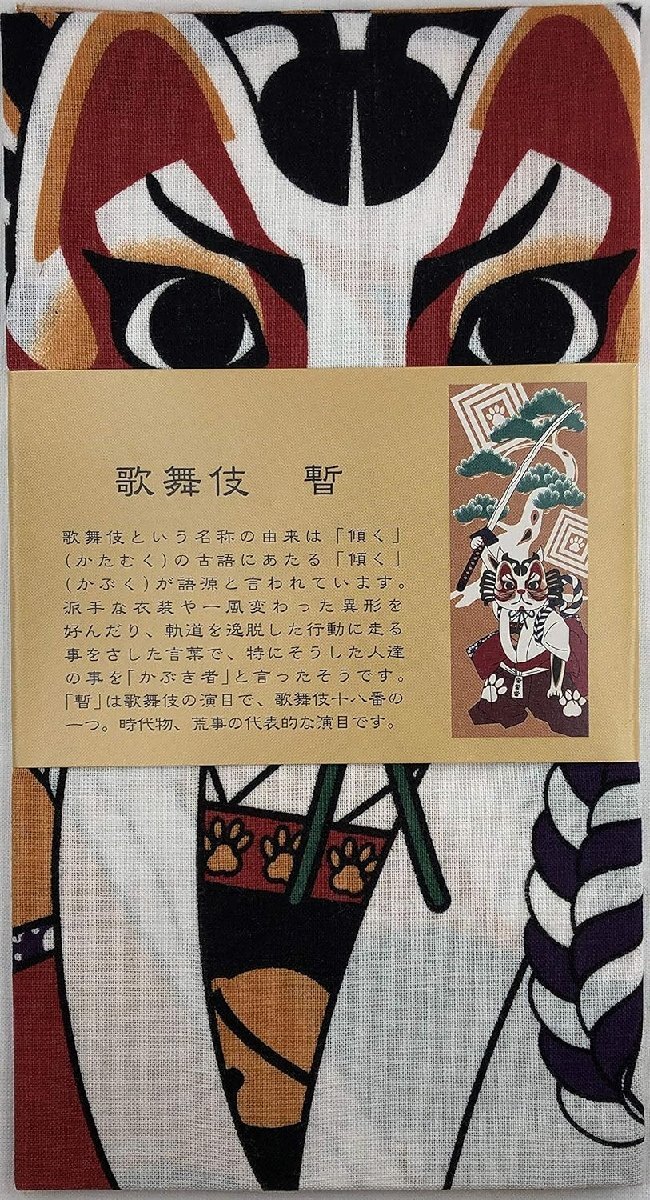 歌舞伎　暫
歌舞伎という名称の由来は「傾く」
(かたむく)の古語にあたる「傾く」
(かぶく)が語源と言われています。
派手な衣装や一風変わった異形を
好んだり、軌道を逸脱した行動に走る
事をさした言葉で、特にそうした人達
の事を「かぶき者」と言ったそうです。
「暫」は歌舞伎の演目で、歌舞伎十八番の
一つ。時代物、荒事の代表的な演目です。